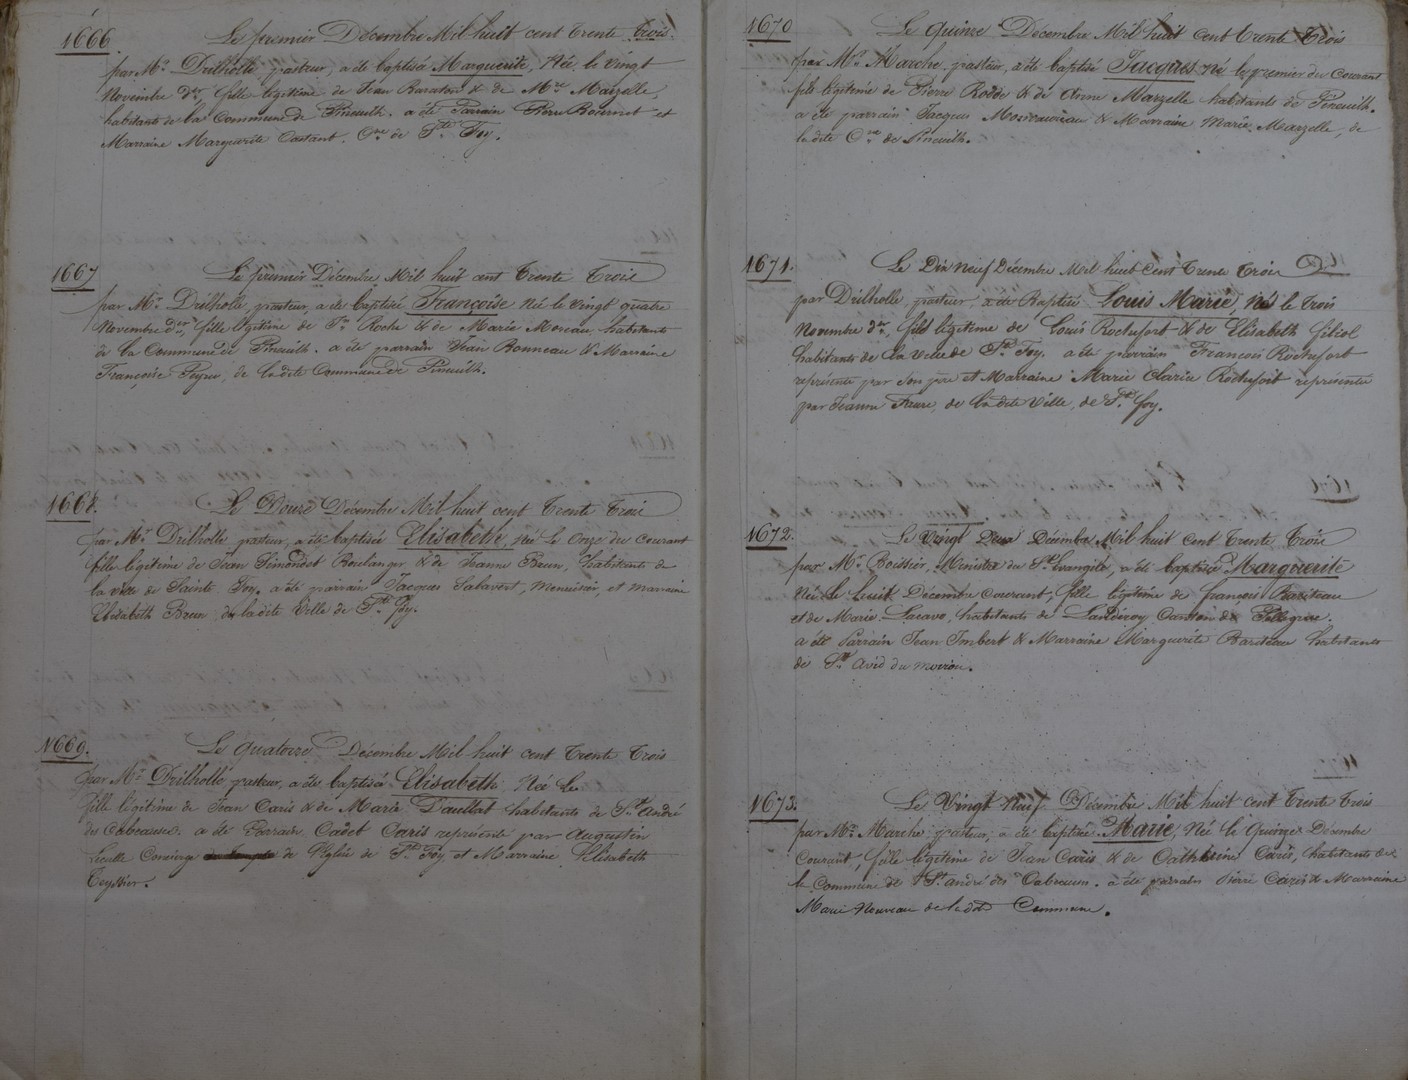 1666 Le premier Décembre Mil huit cent trente trois
par Mr. Drilholle, pasteur, a été baptisée Marguerite, Née le vingt
Novembre der. fille légitime de Jean Baraton & de Mie Marzelle,
habitants de la Commune de Pineuilh. a été Parrain Pierre Bournet et
Marraine Marguerite Castant. Cne de Ste Foy.
1667 Le premier Décembre Mil huit cent trente trois
par Mr. Drilholle, pasteur, a été baptisée Françoise Née le vingt quatre
Novembre der, fille légitime de Roche & de Marie Moreau, habitants
de la Commune de Pineuilh. a été parrain Jean Bonneau & Marraine
Françoise, de ladite Commune de Pineuilh.
1668. Le Douze Décembre Mil huit cent trente trois
par Mr. Drilholle, pasteur, a été baptisée Elisabeth, Née le Onze du Courant
fille légitime de Jean Simondet Boulanger & de Jeanne Brun, habitants de
la ville de Sainte Foy. a été parrain Jacques Salavert, Menuisier, et marraine
Elisabeth Brun de ladite Ville de Ste Foy.
1669. Le quatorze Décembre Mil huit cent trente trois
par Mr. Drilholle pasteur, a été baptisée Elisabeth, Née le
fille légitime de Jean Caris & de Marie habitants de St. André
des Cabeauses. a été Parrain Cadet Caris représenté par Augustin
Concierge de l'Eglise de Ste Foy et Marraine Elisabeth
Teyssier.
1670 Le quinze Décembre Mil huit cent trente trois
par Mr. Marche, pasteur, a été baptisé Jacques Né le premier du Courant
fils légitime de Pierre Rodde & de Anne Marzelle habitants de Pineuilh.
a été parrain Jacques & Marraine Marie Marzelle, de
ladite Cne de Pineuilh.
1671. Le Dix Neuf Décembre Mil huit Cent trente trois
par Drilholle, pasteur, a été Baptisé Louis Marie, Né le trois
Novembre der, fils légitime de Louis Rochefort & de Elisabeth filiol
habitants de la Ville de Ste Foy. a été parrain François Rochefort
représenté par son père et Marraine Marie Clarice Rochefort représentée
par Jeanne, de ladite Ville, de Ste foy.
1672. Le Vingt Deux Décembre Mil huit cent trente trois
par Mr. Boissier, Ministre du St. Evangile, a été baptisée Marguerite
Née le huit Décembre Courant, fille légitime de françois Bariteau
et de Marie Lacave, habitants de Landeroy Canton de Pellegrue.
a été Parrain Jean Imbert & Marraine Marguerite Bariteau habitants
de St. Avid du moiron.
1673. Le Vingt Neuf Décembre Mil huit cent trente trois
par Mr. Marche pasteur, a été baptisée Marie, Née le Quinze Décembre
Courant, fille légitime de Jean Caris & de Catherine Caris, habitants de
la Commune de St. André des Cabeauses. a été parrain Pierre Caris & Marraine
Marie Nouveau de ladite Commune.